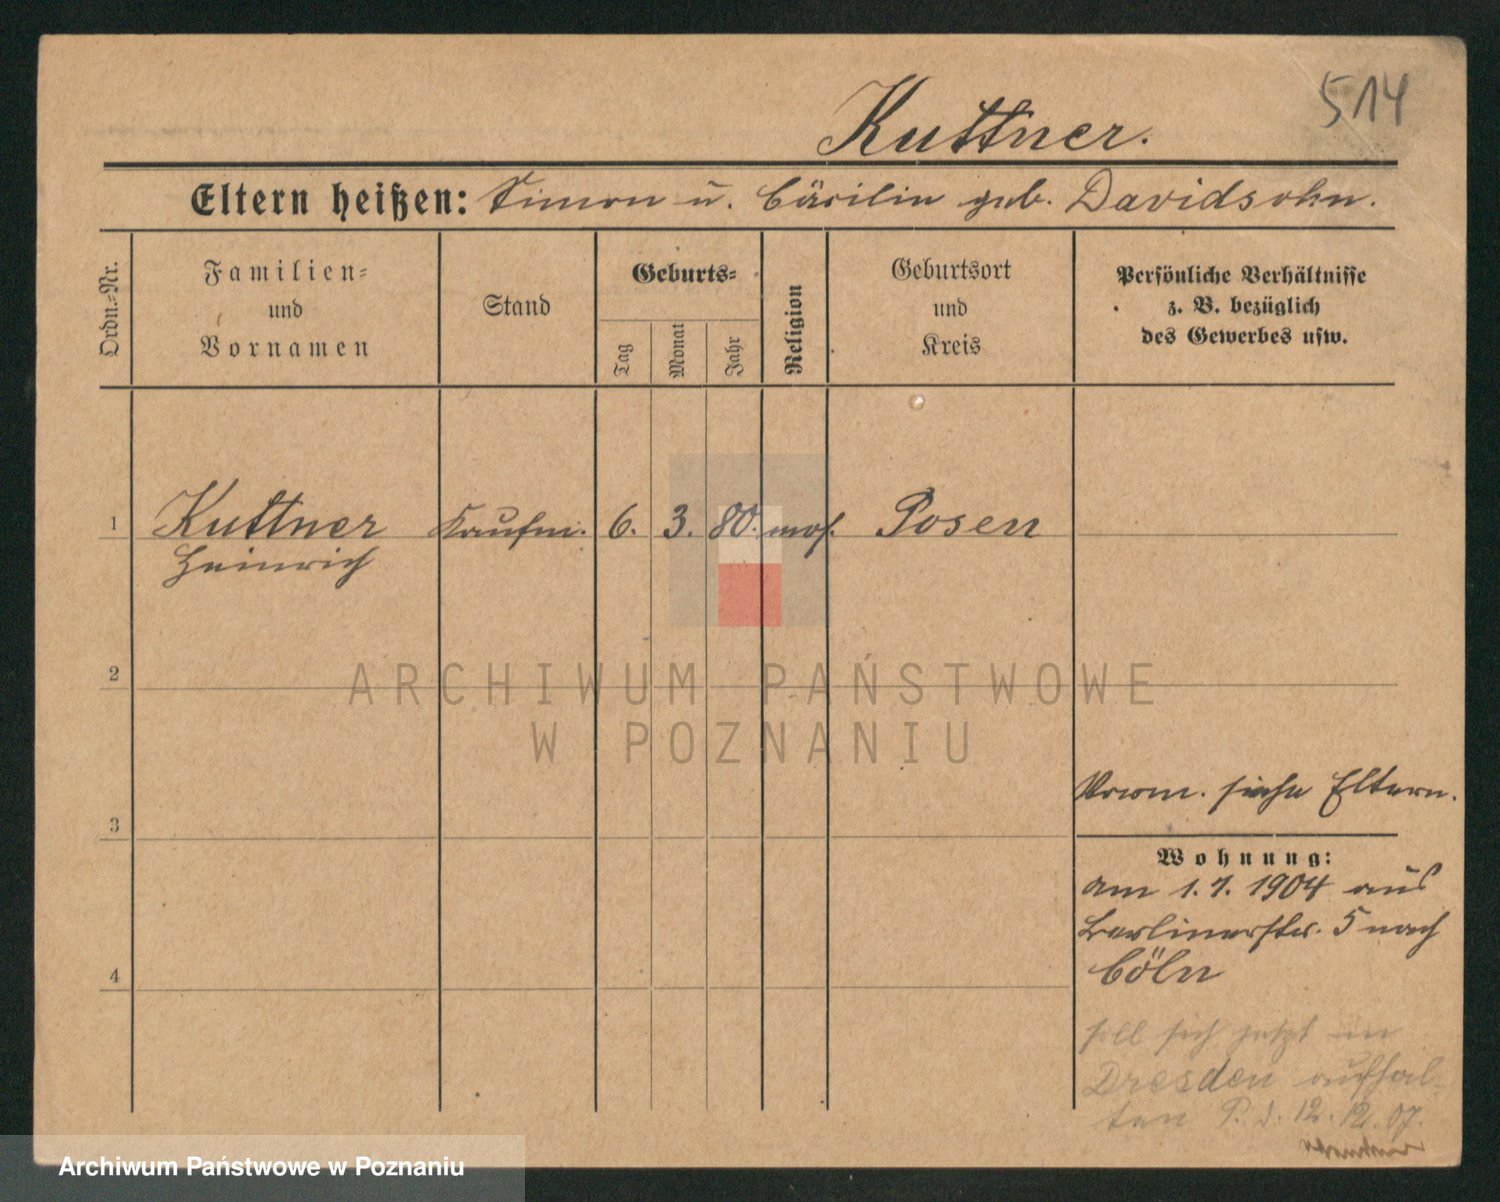 514
Kuttner.
Eltern heißen: Simon u. Cäcilie geb. Davidsohn.
Ordn.=Nr.
Familien=
und
Vornamen
Stand
Geburts=
Tag
Monat
Jahr
Religion
Geburtsort
und
Kreis
Persönliche Verhältnisse
z. B. bezüglich
des Gewerbes usw.
1 Kuttner Kaufm. 6. 3. 80. mos. Posen
Heinrich
2
ARCHIWUM PAŃSTWOWE
W POZNANIU
Vorm. siehe Eltern.
3
Wohnung:
am 1.7.1904 aus
Berlinerstr. 5 nach
Cöln
4
soll sich jetzt in
Dresden aufhal-
ten P. d. 12.12.07.
Archiwum Państwowe w Poznaniu